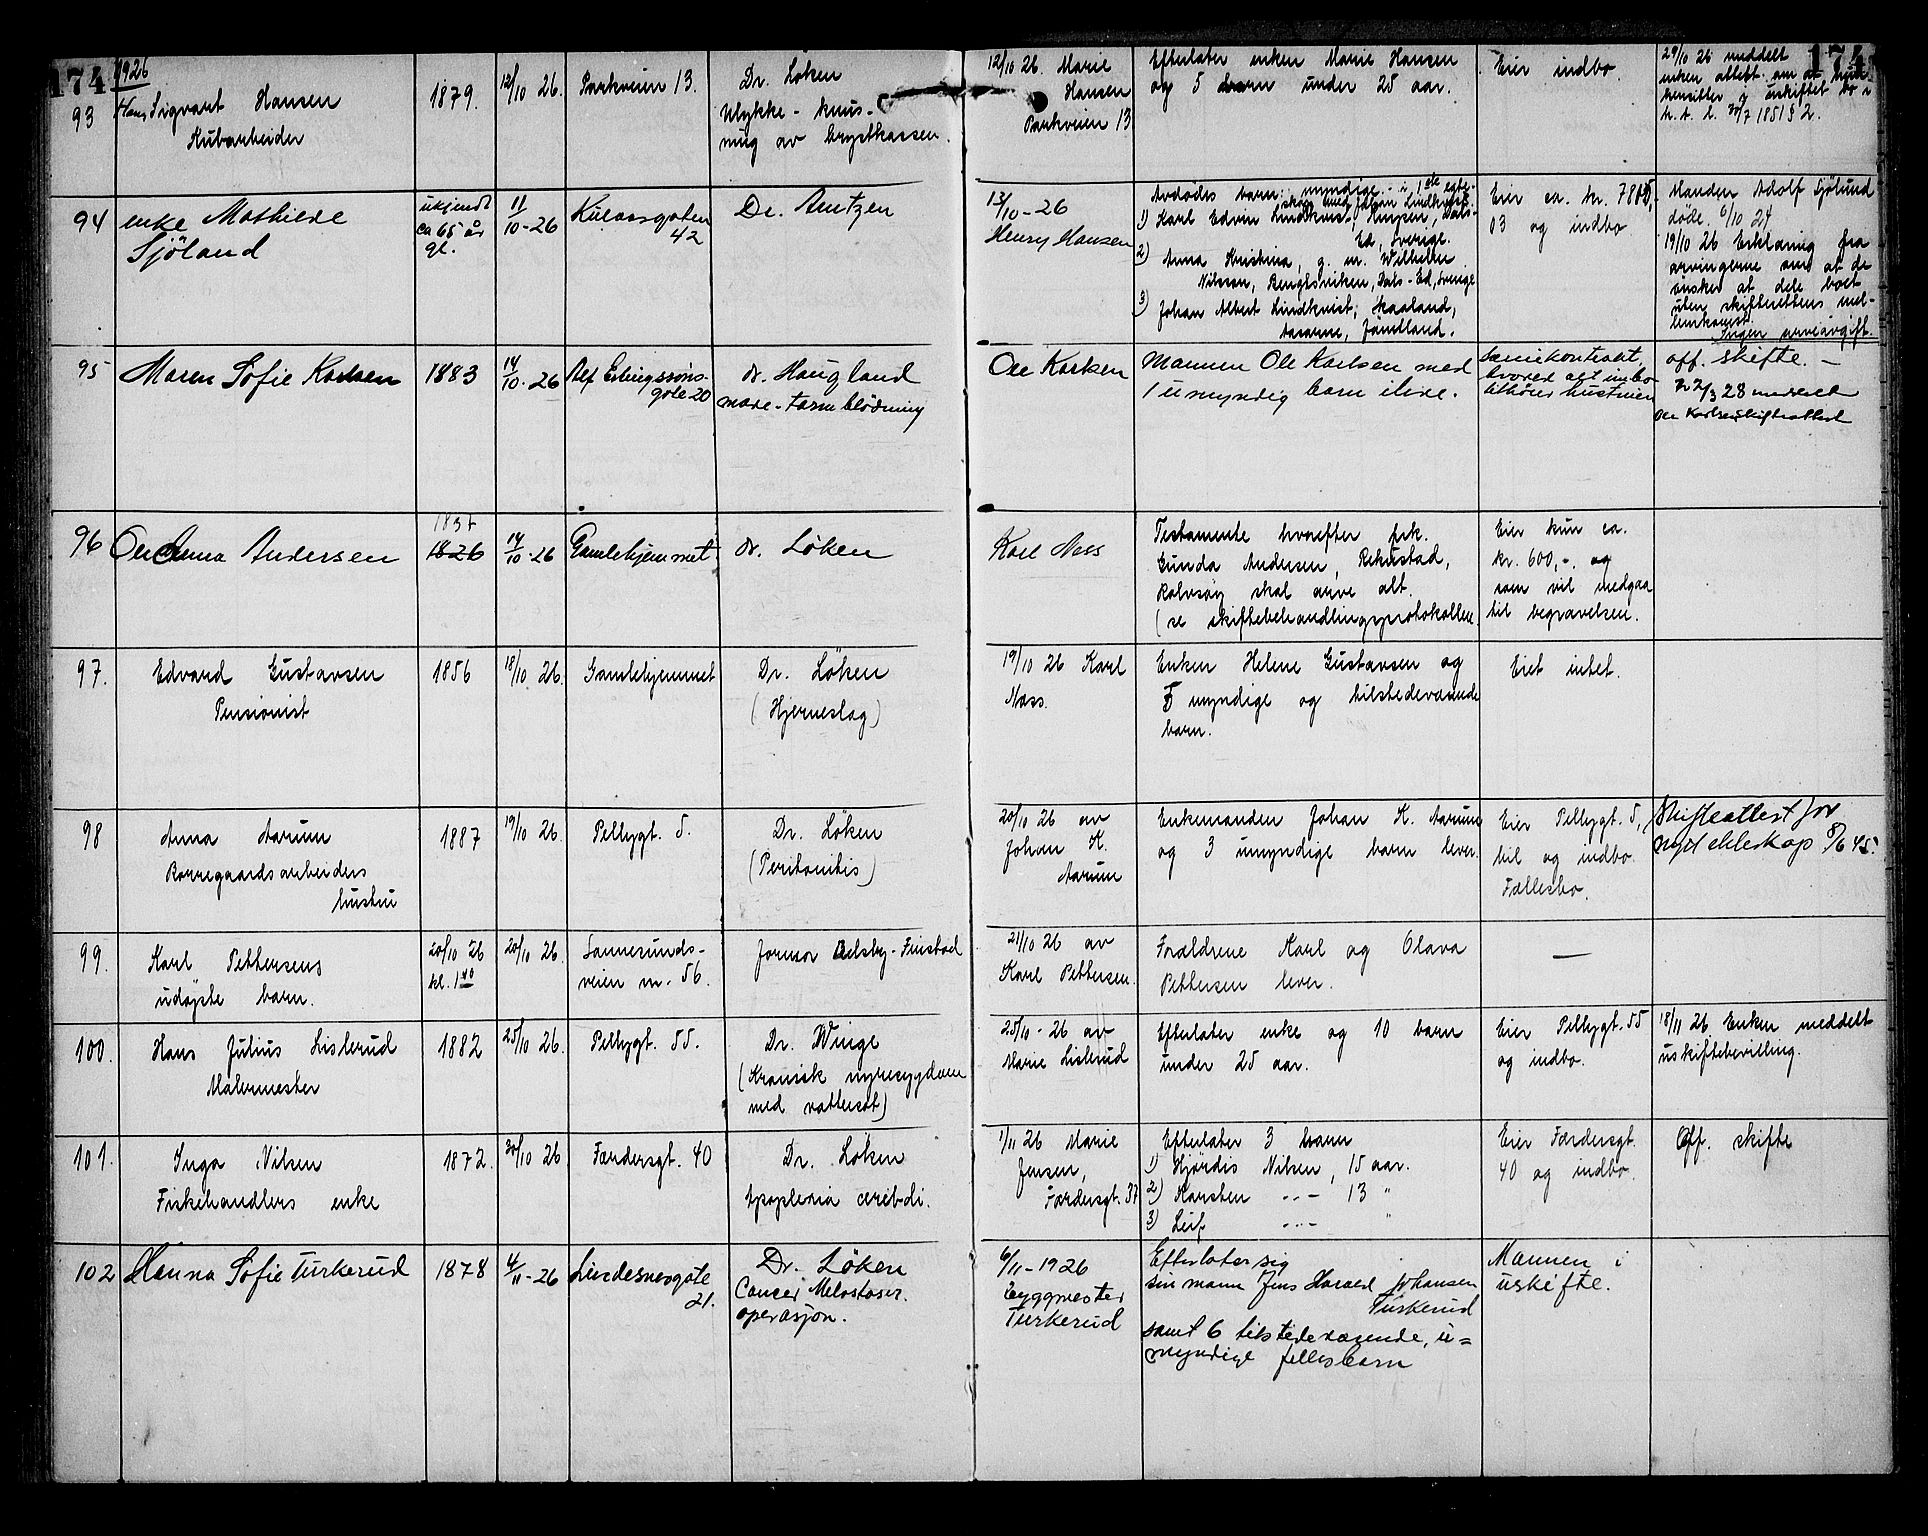 174
1926
174
93
Hans Sigvart Hansen
1879.
12/10 26.
Parkveien 13.
Dr. Løken
Ulykke - knus-
ning av brystkassen.
12/10 26. Marie
Hansen
Parkveien 13
Efterlater enken Marie Hansen
og 5 barn under 25 aar.
Eier indbo.
29/10 26 meddelt
enken attest om at hun
hensitter i uskiftet bo i
h. t. l. 30/7 1851 § 2.
94
enke Mathilde
Sjöland
ukjendt
ca 65 år
gl.
11/10-26
Kulaasgaten
42
Dr. Arntzen
13/10-26
Henry Hansen
Avdødes barn: myndige - i 1ste egte-
skap med Johan Lindkvist.
1) Karl Edvin Lindkvist, Dals-
Ed, Sverige.
2) Anna Kristina, g. m. Wilhelm
Nilsson, Bengtsviken, Dals-Ed, Sverige
3) Johan Albert Lindkvist, Skaaland,
Jämtland.
Eier ca. kr.
03 og indbo
Manden Adolf Sjølund
døde 6/10 24
19/10 26 Erklæring fra
arvingerne om at de
ønsker at dele boet
uten skifterettens mel-
lemkomst.
Ingen arveavgift.
95
Maren Sofie Karlsen
1883
14/10-26
Alf Erlingssøns-
gate 20
dr. Haugland
mave-tarmblødning
Ole Karlsen
Mannen Ole Karlsen med
1 umyndig barn ilive.
Særiekontrakt,
hvorved alt indbo
tilhører hustruen
off. skifte. -
2/3 28 meddelt
Ole Karlsen skifteattest
96
Anna Andersen
1837
1826
14/10-26
Gamlehjemmet
dr. Løken
Karl Næss
Testamente hvorefter frk.
Gunda Andersen, Rekustad,
Rolvsøy skal arve alt.
(se skiftebehandlingsprotokollen
Eier kun ca.
kr. 600,-. og
som vil medgaa
til begravelsen.
97.
Edvard Gustavsen
Pensionist
1856
18/10 26.
Gamlehjemmet
Dr. Løken
(Hjerneslag)
19/10 26 Karl
Næss.
Enken Helene Gustavsen og
5 myndige og tilstedeværende
barn.
Eiet intet.
98
Anna Aarum
Borregaardsarbeiders
hustru
1887
19/10 26.
Pellygt. 5.
Dr. Løken
(Peritonitis)
20/10 26 av
Johan K.
Aarum
Enkemanden Johan K. Aarum
og 3 umyndige barn lever.
Eier Pellygt. 5,
bil og indbo.
Fællesbo.
Skifteattest for
nytt ekteskap 8/6 45.
99.
Karl Pettersens
udøpte barn.
20/10 26
kl. 1 40
20/10 26.
Sannesunds-
veien nr. 56.
Jormor Aelsby-Finstad
21/10 26 av
Karl Pettersen.
Forældrene Karl og Olava
Pettersen lever.
—
100.
Hans Julius Lislerud
Malermester
1882
25/10 26.
Pellygt. 55.
Dr. Winge
(Kronisk nyresygdom
med vattersot)
25/10-26 av
Marie Lislerud
Efterlater enke og 10 barn
under 25 aar.
Eier Pellygt. 55
og indbo.
18/11 26. Enken meddelt
uskiftebevilling.
101.
Inga Nilsen
Fiskehandlers enke
1872.
30/10 26
Færdersgt. 40
Dr. Løken
Apoplexia cerebri.
1/11 26 Marie
Jensen,
Færdersgt. 37
Efterlater 3 barn
1) Hjørdis Nilsen, 15 aar.
2) Karsten -"- 13 "
3) Leif -"- "
Eier Færdersgt.
40 og indbo.
Off. skifte
102
Hanna Sofie Turkerud
1878
4/11-26
Lindesnesgate
21.
Dr. Løken
Cancer Metastaser.
operasjon.
6/11-1926
Byggmester
Turkerud
Efterlater sig
sin mann Jens Harald Johansen
Turkerud
samt 6 tilstedeværende, u=
myndige fellesbarn
Mannen i
uskifte.